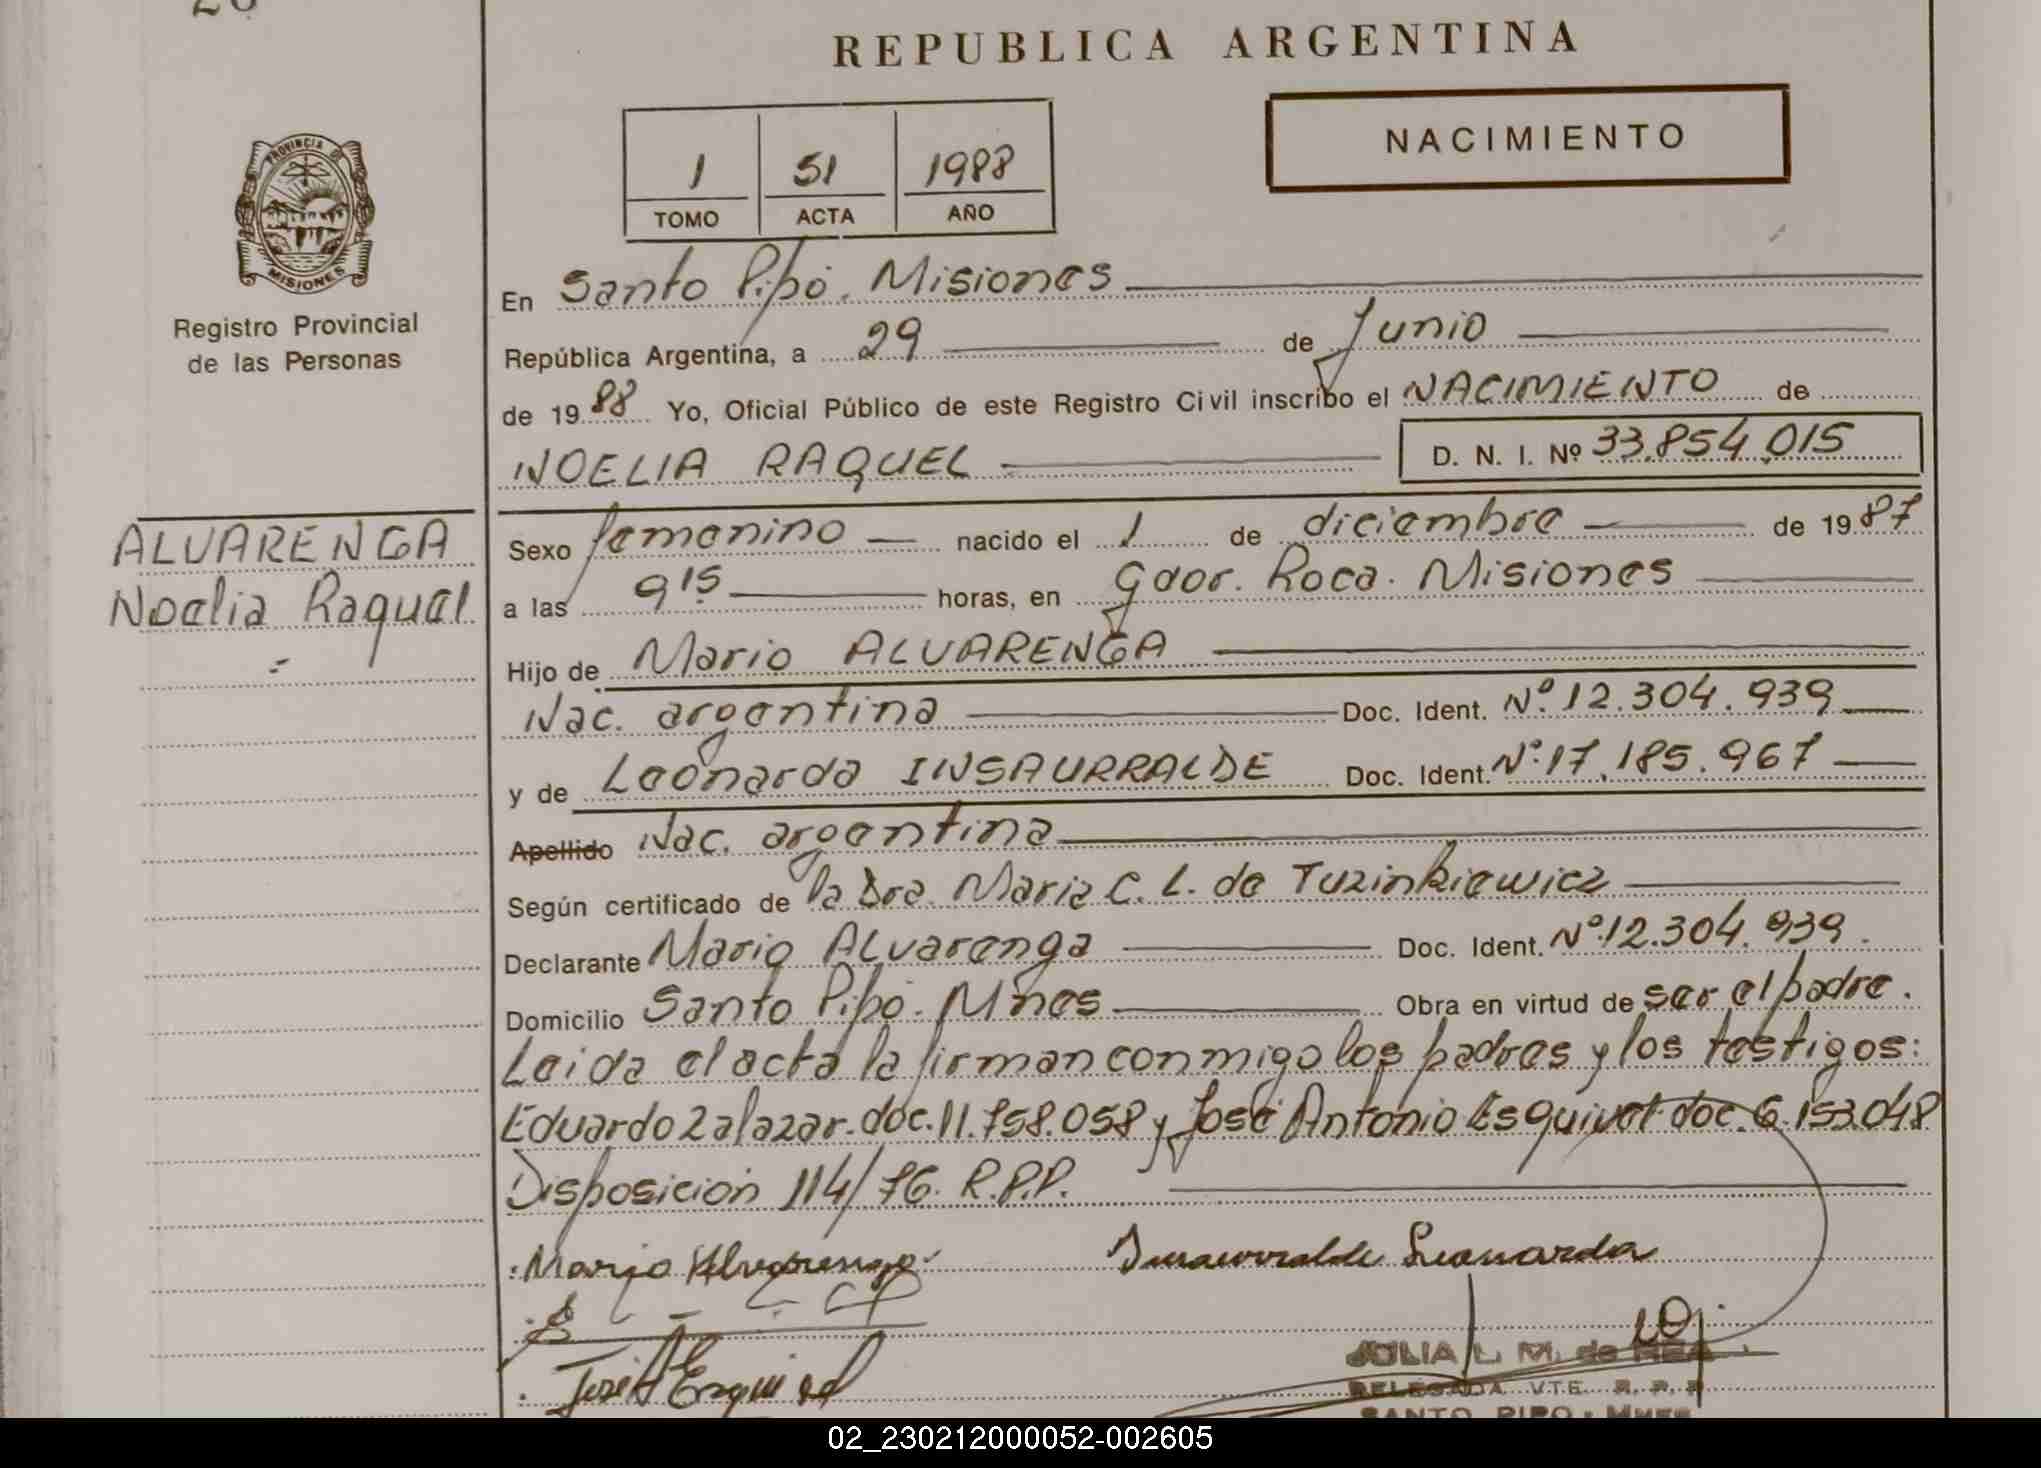 REPUBLICA ARGENTINA
NACIMIENTO
1 51 1988
TOMO ACTA AÑO
PROVINCIA DE
MISIONES
Registro Provincial
de las Personas
ALVARENGA
Noelia Raquel
En Santo Pipó. Misiones
República Argentina, a 29 de Junio
de 1988 Yo, Oficial Público de este Registro Civil inscribo el NACIMIENTO de
NOELIA RAQUEL D. N. I. Nº 33.854.015
Sexo femenino nacido el 1 de diciembre de 1987
a las 9 15 horas, en Gdor. Roca. Misiones
Hijo de Mario ALVARENGA
Nac. argentina Doc. Ident. Nº 12.304.939
y de Leonarda INSAURRALDE Doc. Ident. Nº 17.185.967
Apellido Nac. argentina
Según certificado de la Dra. Maria C. L. de Tuzinkiewicz
Declarante Mario Alvarenga Doc. Ident. Nº 12.304.939.
Domicilio Santo Pipó. Mnes Obra en virtud de ser el padre.
Leida el acta la firman conmigo los padres y los testigos:
Eduardo Zalazar. doc. 11.758.058 y José Antonio Esquivel doc. 6.153.048
Disposición 114/76. R.P.P.
Mario Alvarenga Insaurralde Leonarda
José A Esquivel
JULIA L. M. de REA
DELEGADA VTE. R. P. P
SANTO PIPO - Mnes
02_230212000052-002605